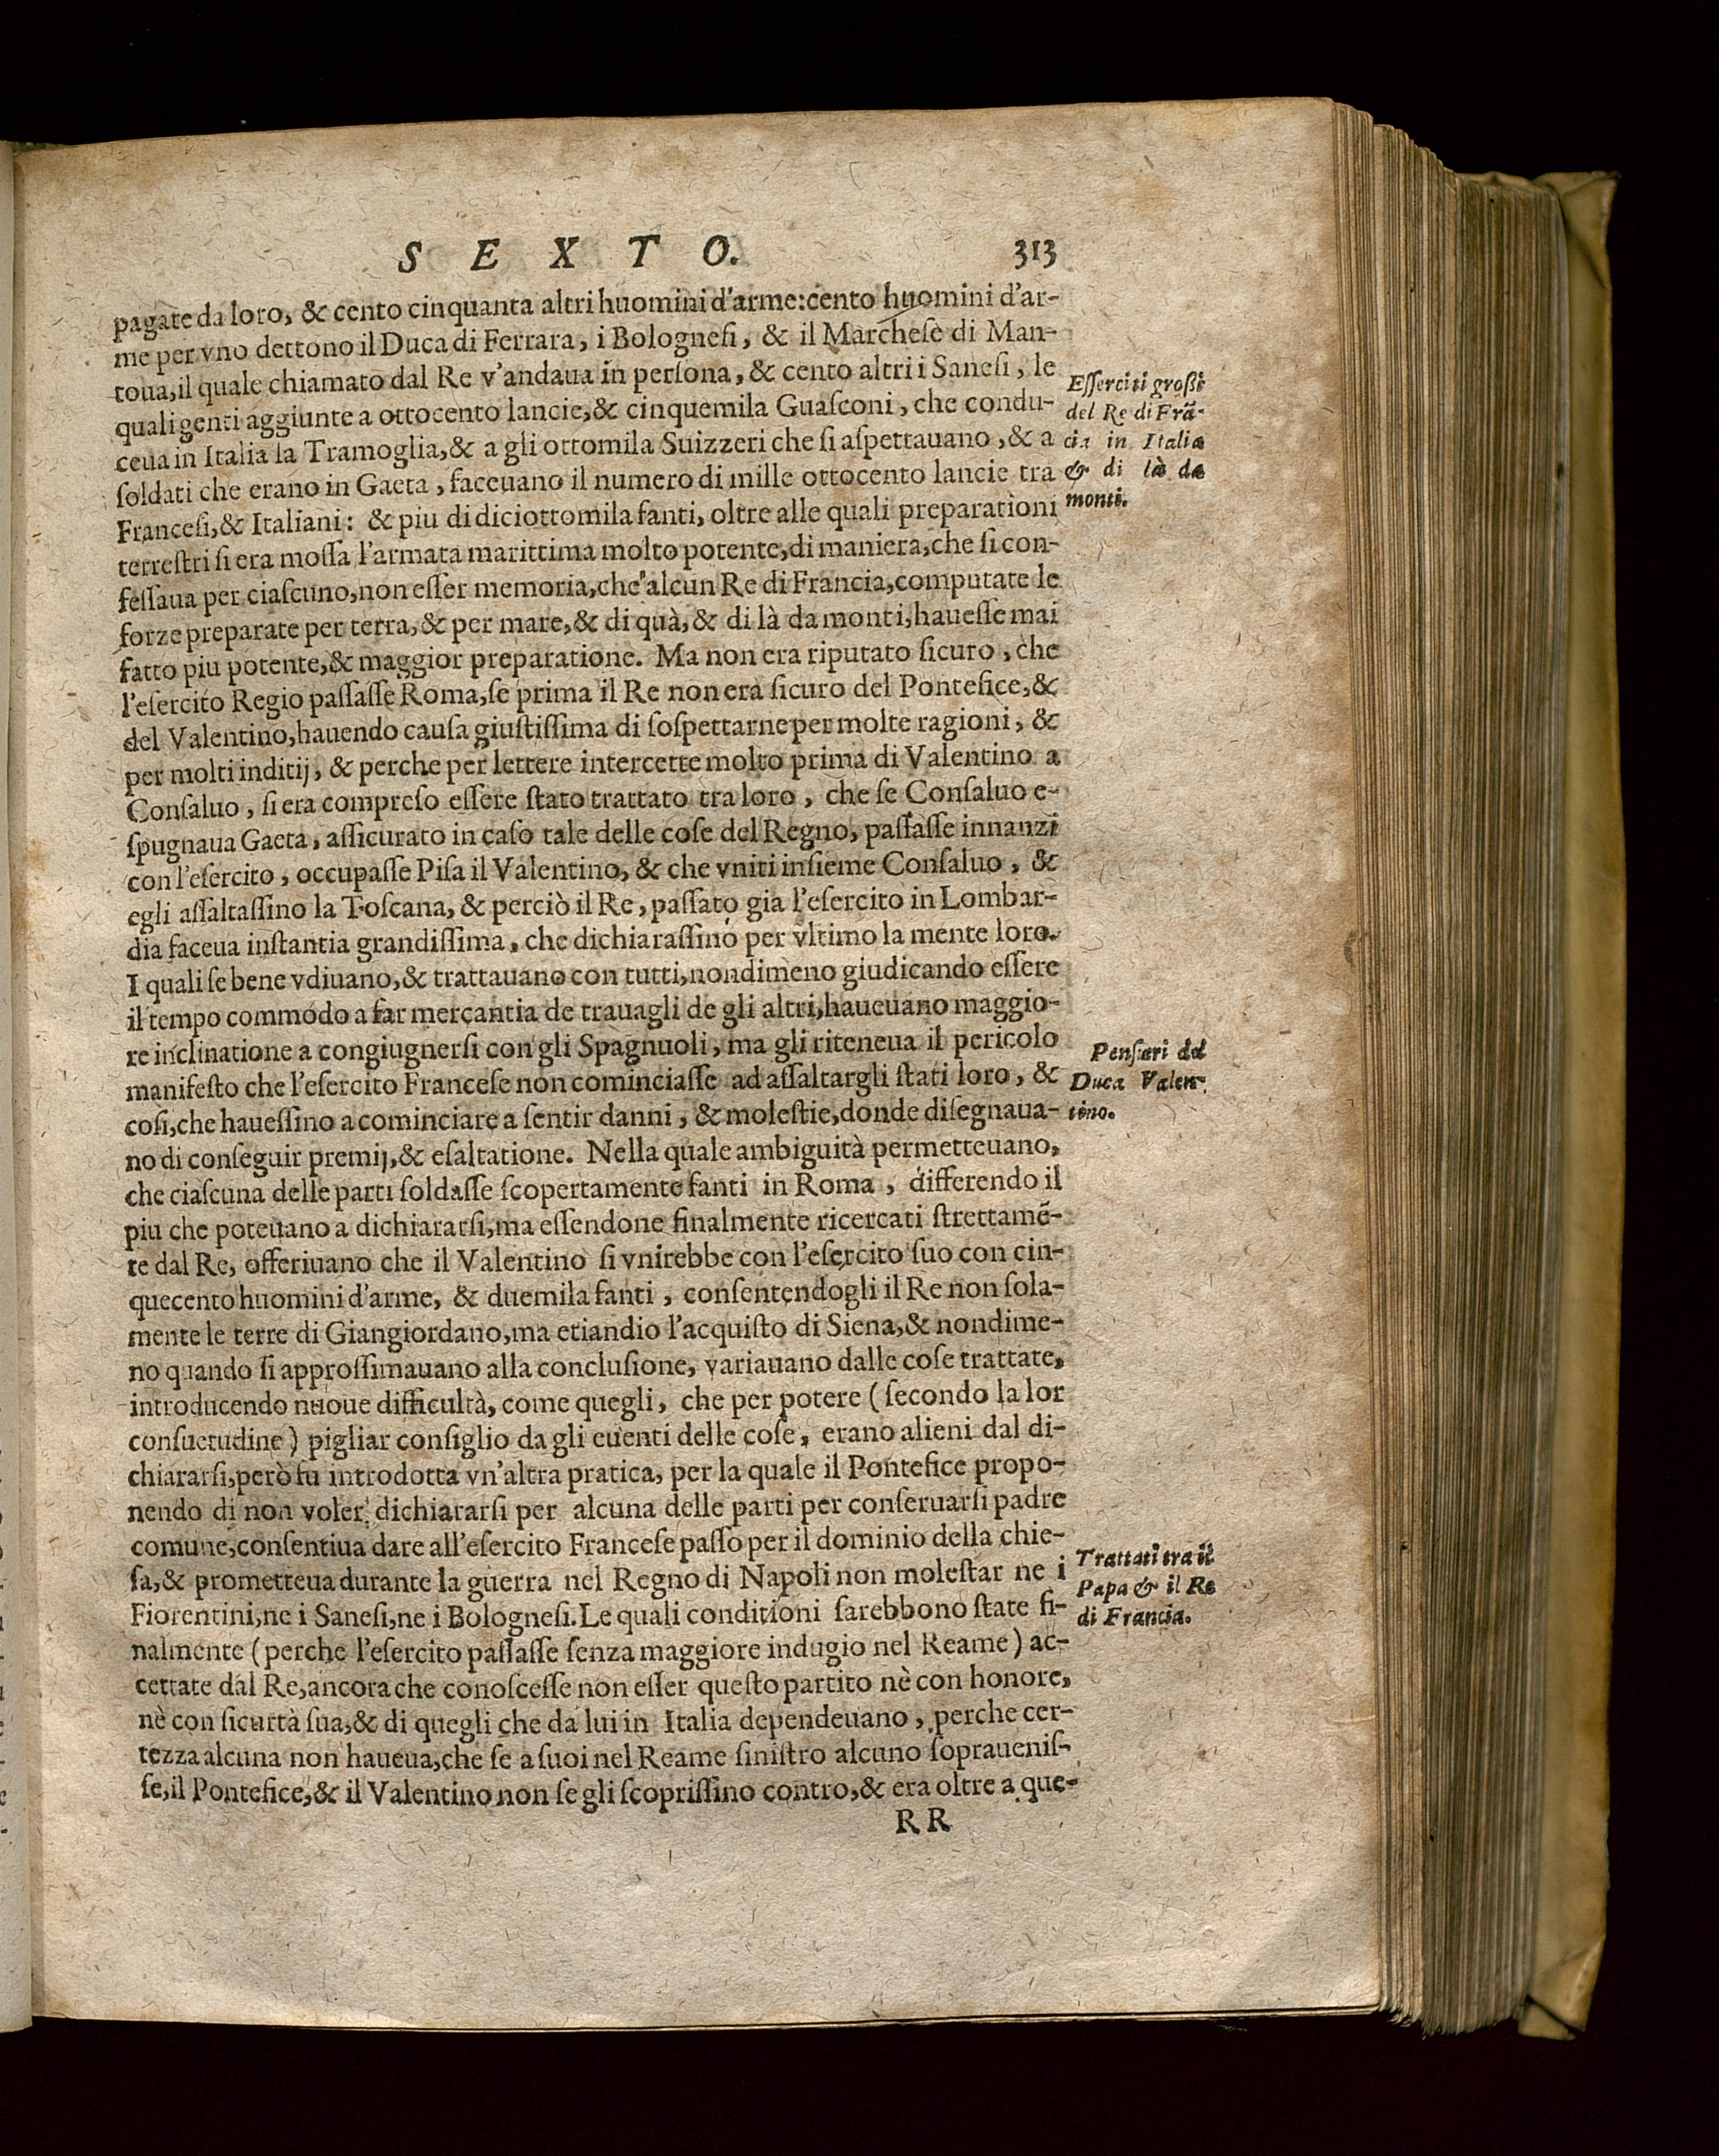 SEXTO. 313
pagate da loro, & cento cinquanta altri huomini d'arme: cento huomini d'ar-
me per vno dettono il Duca di Ferrara, i Bolognesi, & il Marchese di Man-
toua, il quale chiamato dal Re v'andaua in persona, & cento altri i Sanesi, le
quali genti aggiunte a ottocento lancie, & cinquemila Guasconi, che condu-
ceua in Italia la Tramoglia, & a gli ottomila Suizzeri che si aspettauano, & a
soldati che erano in Gaeta, faceuano il numero di mille ottocento lancie tra
Francesi, & Italiani: & piu di diciottomila fanti, oltre alle quali preparationi
terrestri si era mossa l'armata marittima molto potente, di maniera, che si con-
fessaua per ciascuno, non esser memoria, che alcun Re di Francia, computate le
forze preparate per terra, & per mare, & di quà, & di là da monti, hauesse mai
fatto piu potente, & maggior preparatione. Ma non era riputato sicuro, che
l'esercito Regio passasse Roma, se prima il Re non era sicuro del Pontefice, &
del Valentino, hauendo causa giustissima di sospettarne per molte ragioni, &
per molti inditij, & perche per lettere intercette molto prima di Valentino a
Consaluo, si era compreso essere stato trattato tra loro, che se Consaluo e-
spugnaua Gaeta, assicurato in caso tale delle cose del Regno, passasse innanzi
con l'esercito, occupasse Pisa il Valentino, & che vniti insieme Consaluo, &
egli assaltassino la Toscana, & perciò il Re, passato gia l'esercito in Lombar-
dia faceua instantia grandissima, che dichiarassino per vltimo la mente loro.
I quali se bene vdiuano, & trattauano con tutti, nondimeno giudicando essere
il tempo commodo a far mercantia de trauagli de gli altri, haueuano maggio-
re inclinatione a congiugnersi con gli Spagnuoli, ma gli riteneua il pericolo
manifesto che l'esercito Francese non cominciasse ad assaltar gli stati loro, &
cosi, che hauessino a cominciare a sentir danni, & molestie, donde disegnaua-
no di conseguir premij, & esaltatione. Nella quale ambiguità permetteuano,
che ciascuna delle parti soldasse scopertamente fanti in Roma, differendo il
piu che poteuano a dichiararsi, ma essendone finalmente ricercati strettamẽ-
te dal Re, offeriuano che il Valentino si vnirebbe con l'esercito suo con cin-
quecento huomini d'arme, & duemila fanti, consentendogli il Re non sola-
mente le terre di Giangiordano, ma etiandio l'acquisto di Siena, & nondime-
no quando si approssimauano alla conclusione, variauano dalle cose trattate,
introducendo nuoue difficultà, come quegli, che per potere (secondo la lor
consuetudine) pigliar consiglio da gli euenti delle cose, erano alieni dal di-
chiararsi, però fu introdotta vn'altra pratica, per la quale il Pontefice propo-
nendo di non voler dichiararsi per alcuna delle parti per conseruarsi padre
comune, consentiua dare all'esercito Francese passo per il dominio della chie-
sa, & prometteua durante la guerra nel Regno di Napoli non molestar ne i
Fiorentini, ne i Sanesi, ne i Bolognesi. Le quali conditioni sarebbono state fi-
nalmente (perche l'esercito passasse senza maggiore indugio nel Reame) ac-
cettate dal Re, ancora che conoscesse non esser questo partito nè con honore,
nè con sicurtà sua, & di quegli che da lui in Italia dependeuano, perche cer-
tezza alcuna non haueua, che se a suoi nel Reame sinistro alcuno soprauenis-
se, il Pontefice, & il Valentino non se gli scoprissino contro, & era oltre a que-
RR
Esserciti grossi
del Re di Frã-
cia in Italia
& di là da
monti.
Pensieri del
Duca Valen-
tino.
Trattati tra il
Papa & il Re
di Francia.